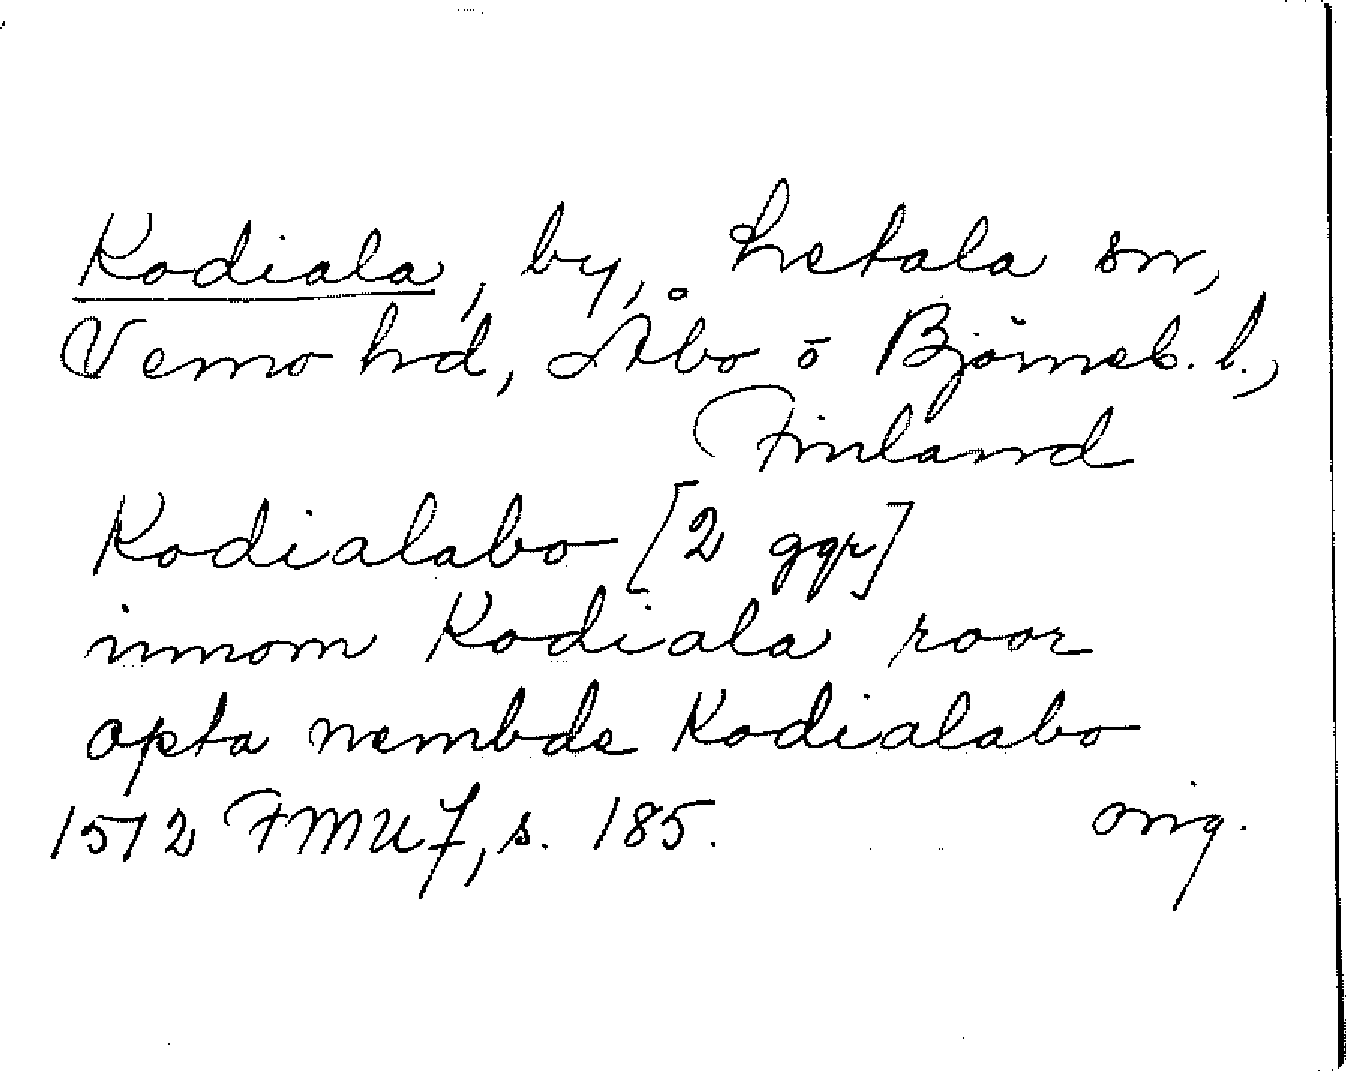 Kodiala, by, Letala sn,
Vemo hd, Åbo o Björneb. l.,
Finland
Kodialabo [2 ggr]
innom Kodiala roor
opta nembde Kodialabo
1572 FMU 7, s. 185. orig.